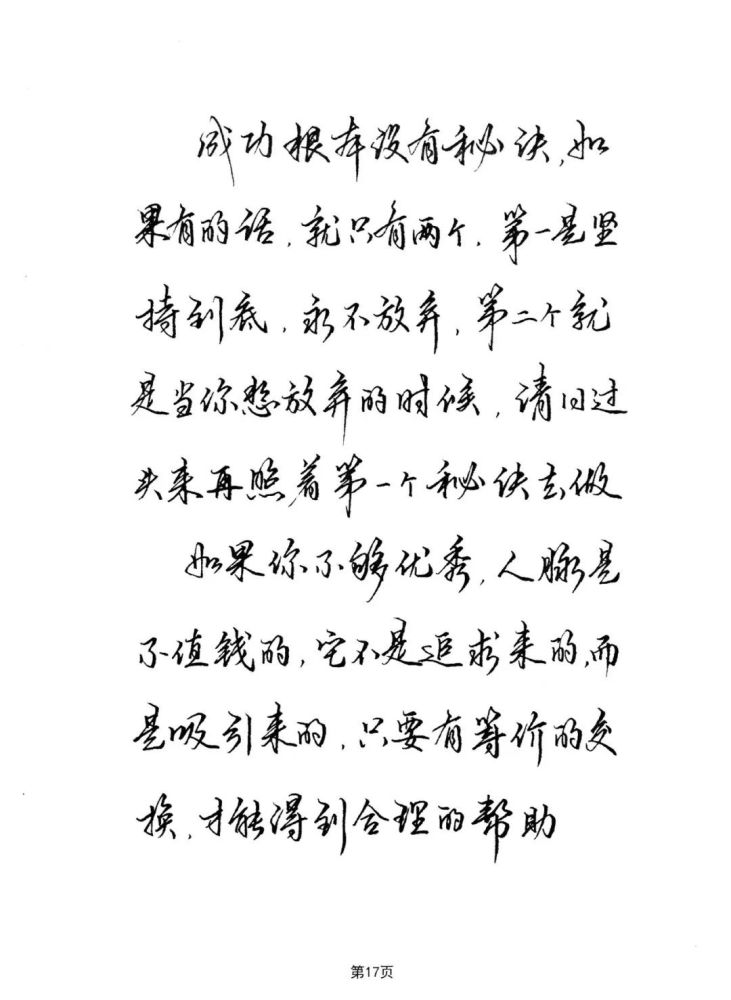 成功根本没有秘诀,如
果有的话,就只有两个,第一是坚
持到底,永不放弃,第二个就
是当你想放弃的时候,请回过
头来再照着第一个秘诀去做
如果你不够优秀,人脉是
不值钱的,它不是追求来的,而
是吸引来的,只要有等价的交
换,才能得到合理的帮助
第17页